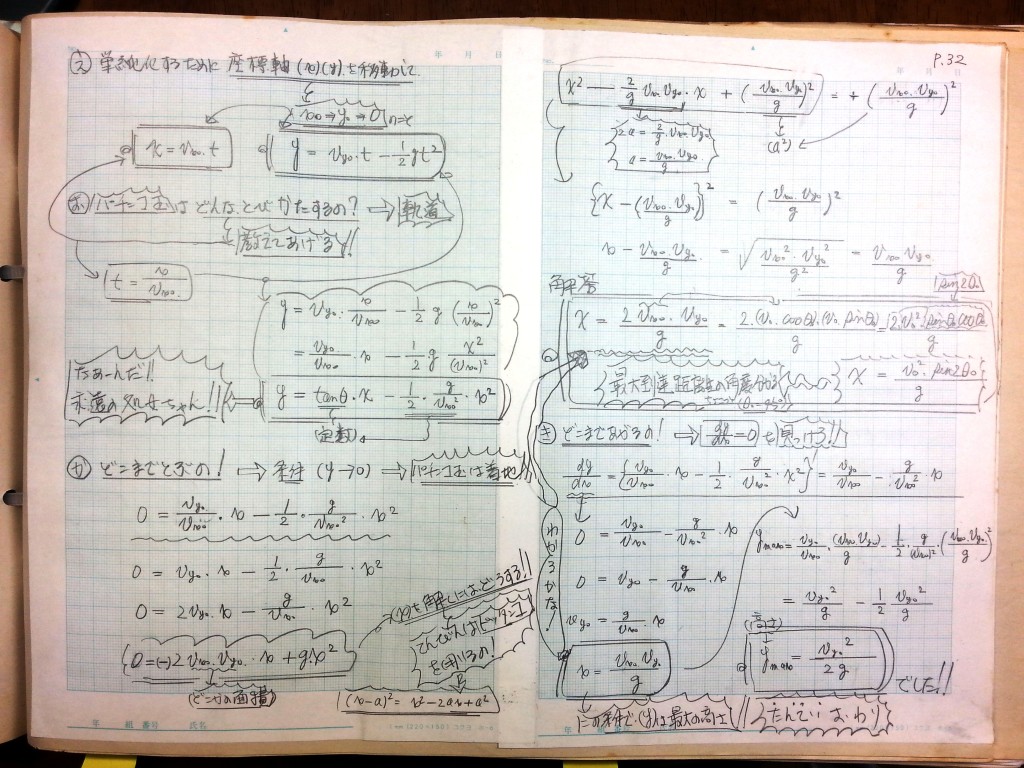 年 月 日
え 単純化するために 座標軸 (x)(y) を移動して
x₀ ⇒ y₀ ⇒ 0
x = v_{x0}・t
y = v_{y0}・t − 1/2 g t²
お パチンコ玉はどんなとびかたするの? ⇒ 軌道
教えてあげる!!
t = x/v_{x0}
y = v_{y0}・x/v_{x0} − 1/2 g (x/v_{x0})²
= v_{y0}/v_{x0}・x − 1/2 g x²/(v_{x0})²
なぁーんだ!!
y = tanθ・x − 1/2・g/v_{x0}²・x²
(定数)
か どこまでとぶの! ⇒ 条件 (y→0) ⇒ パチンコ玉は着地
0 = v_{y0}/v_{x0}・x − 1/2・g/v_{x0}²・x²
0 = v_{y0}・x − 1/2・g/v_{x0}・x²
0 = 2v_{y0}・x − g/v_{x0}・x²
(x)を解くにはどうする!!
0 = (−)2 v_{x0}・v_{y0}・x + gx²
(x−a)² = x² − 2ax + a²
年 組 番号 氏名
P.32
年 月 日
x² − 2/g v_{x0}・v_{y0}・x + (v_{x0}・v_{y0}/g)² = + (v_{x0}・v_{y0}/g)²
2a = 2/g・v_{x0}・v_{y0}
a = v_{x0}・v_{y0}/g
(a²)
{x − (v_{x0}・v_{y0}/g)}² = (v_{x0}・v_{y0}/g)²
x − v_{x0}・v_{y0}/g = √(v_{x0}²・v_{y0}²/g²) = v_{x0}・v_{y0}/g
sin2θ₀
x = 2v_{x0}・v_{y0}/g = 2・(v₀・cosθ₀)・(v₀・sinθ₀)/g = 2・v₀²・sinθ₀cosθ₀/g
x = v₀²・sin2θ₀/g
き どこまであがるの! ⇒ dy/dx = 0 を見つけろ!!
dy/dx = {v_{y0}/v_{x0}・x − 1/2・g/v_{x0}²・x²}' = v_{y0}/v_{x0} − g/v_{x0}²・x
わかるかな?
0 = v_{y0}/v_{x0} − g/v_{x0}²・x
0 = v_{y0} − g/v_{x0}・x
v_{y0} = g/v_{x0}・x
x = v_{x0}・v_{y0}/g
y_{max} = v_{y0}/v_{x0}・(v_{x0}・v_{y0})/g − 1/2・g/(v_{x0})²・(v_{x0}・v_{y0}/g)²
= v_{y0}²/g − 1/2 v_{y0}²/g
(高さ)
y_{max} = v_{y0}²/2g
でした!!
この条件で、(y)は最大の高さ!!